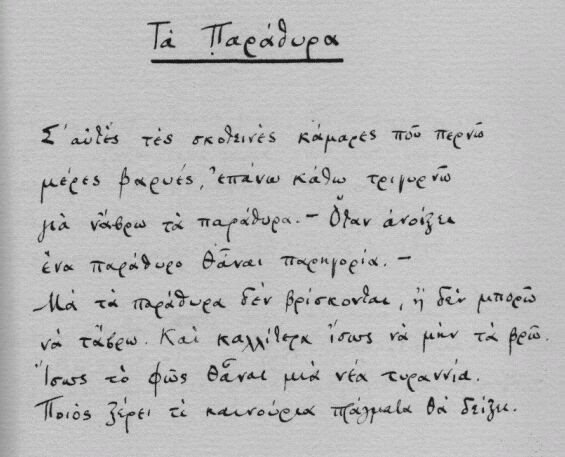 Τὰ Παράθυρα
Σ' αὐτὲς τὲς σκοτεινὲς κάμαρες ποῦ περνῶ
μέρες βαρυές, ἐπάνω κάτω τριγυρνῶ
γιὰ νἄβρω τὰ παράθυρα. — Ὅταν ἀνοίξει
ἕνα παράθυρο θἆναι παρηγορία. —
Μὰ τὰ παράθυρα δὲν βρίσκονται, ἢ δὲν μπορῶ
νὰ τἄβρω. Καὶ καλλίτερα ἴσως νὰ μὴν τὰ βρῶ.
Ἴσως τὸ φῶς θἆναι μιὰ νέα τυραννία.
Ποιὸς ξέρει τὶ καινούρια πράγματα θὰ δείξει.